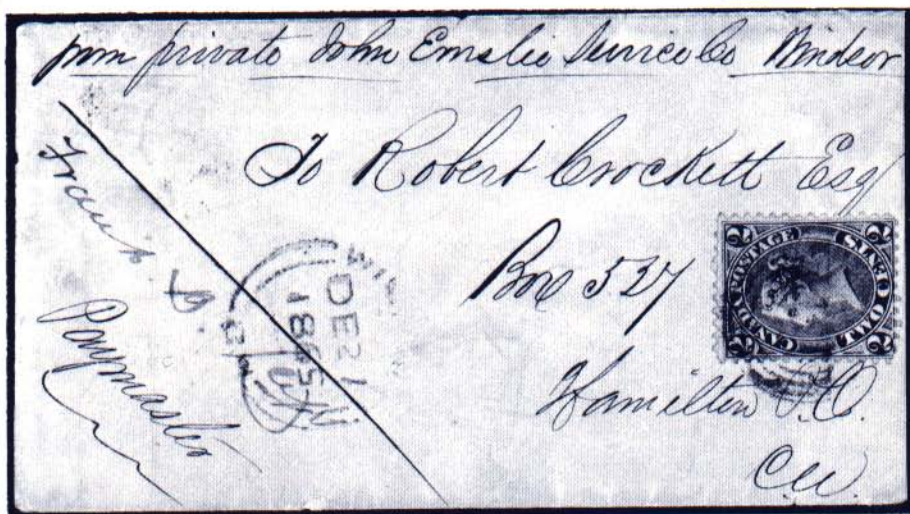 from private John Emslie Service Co Windsor
To Robert Crockett Esq
Box 527
Hamilton P.O.
C.W.
Paymaster
DE 2
1865
CANADA POSTAGE
TWO CENTS
2 2 2 2